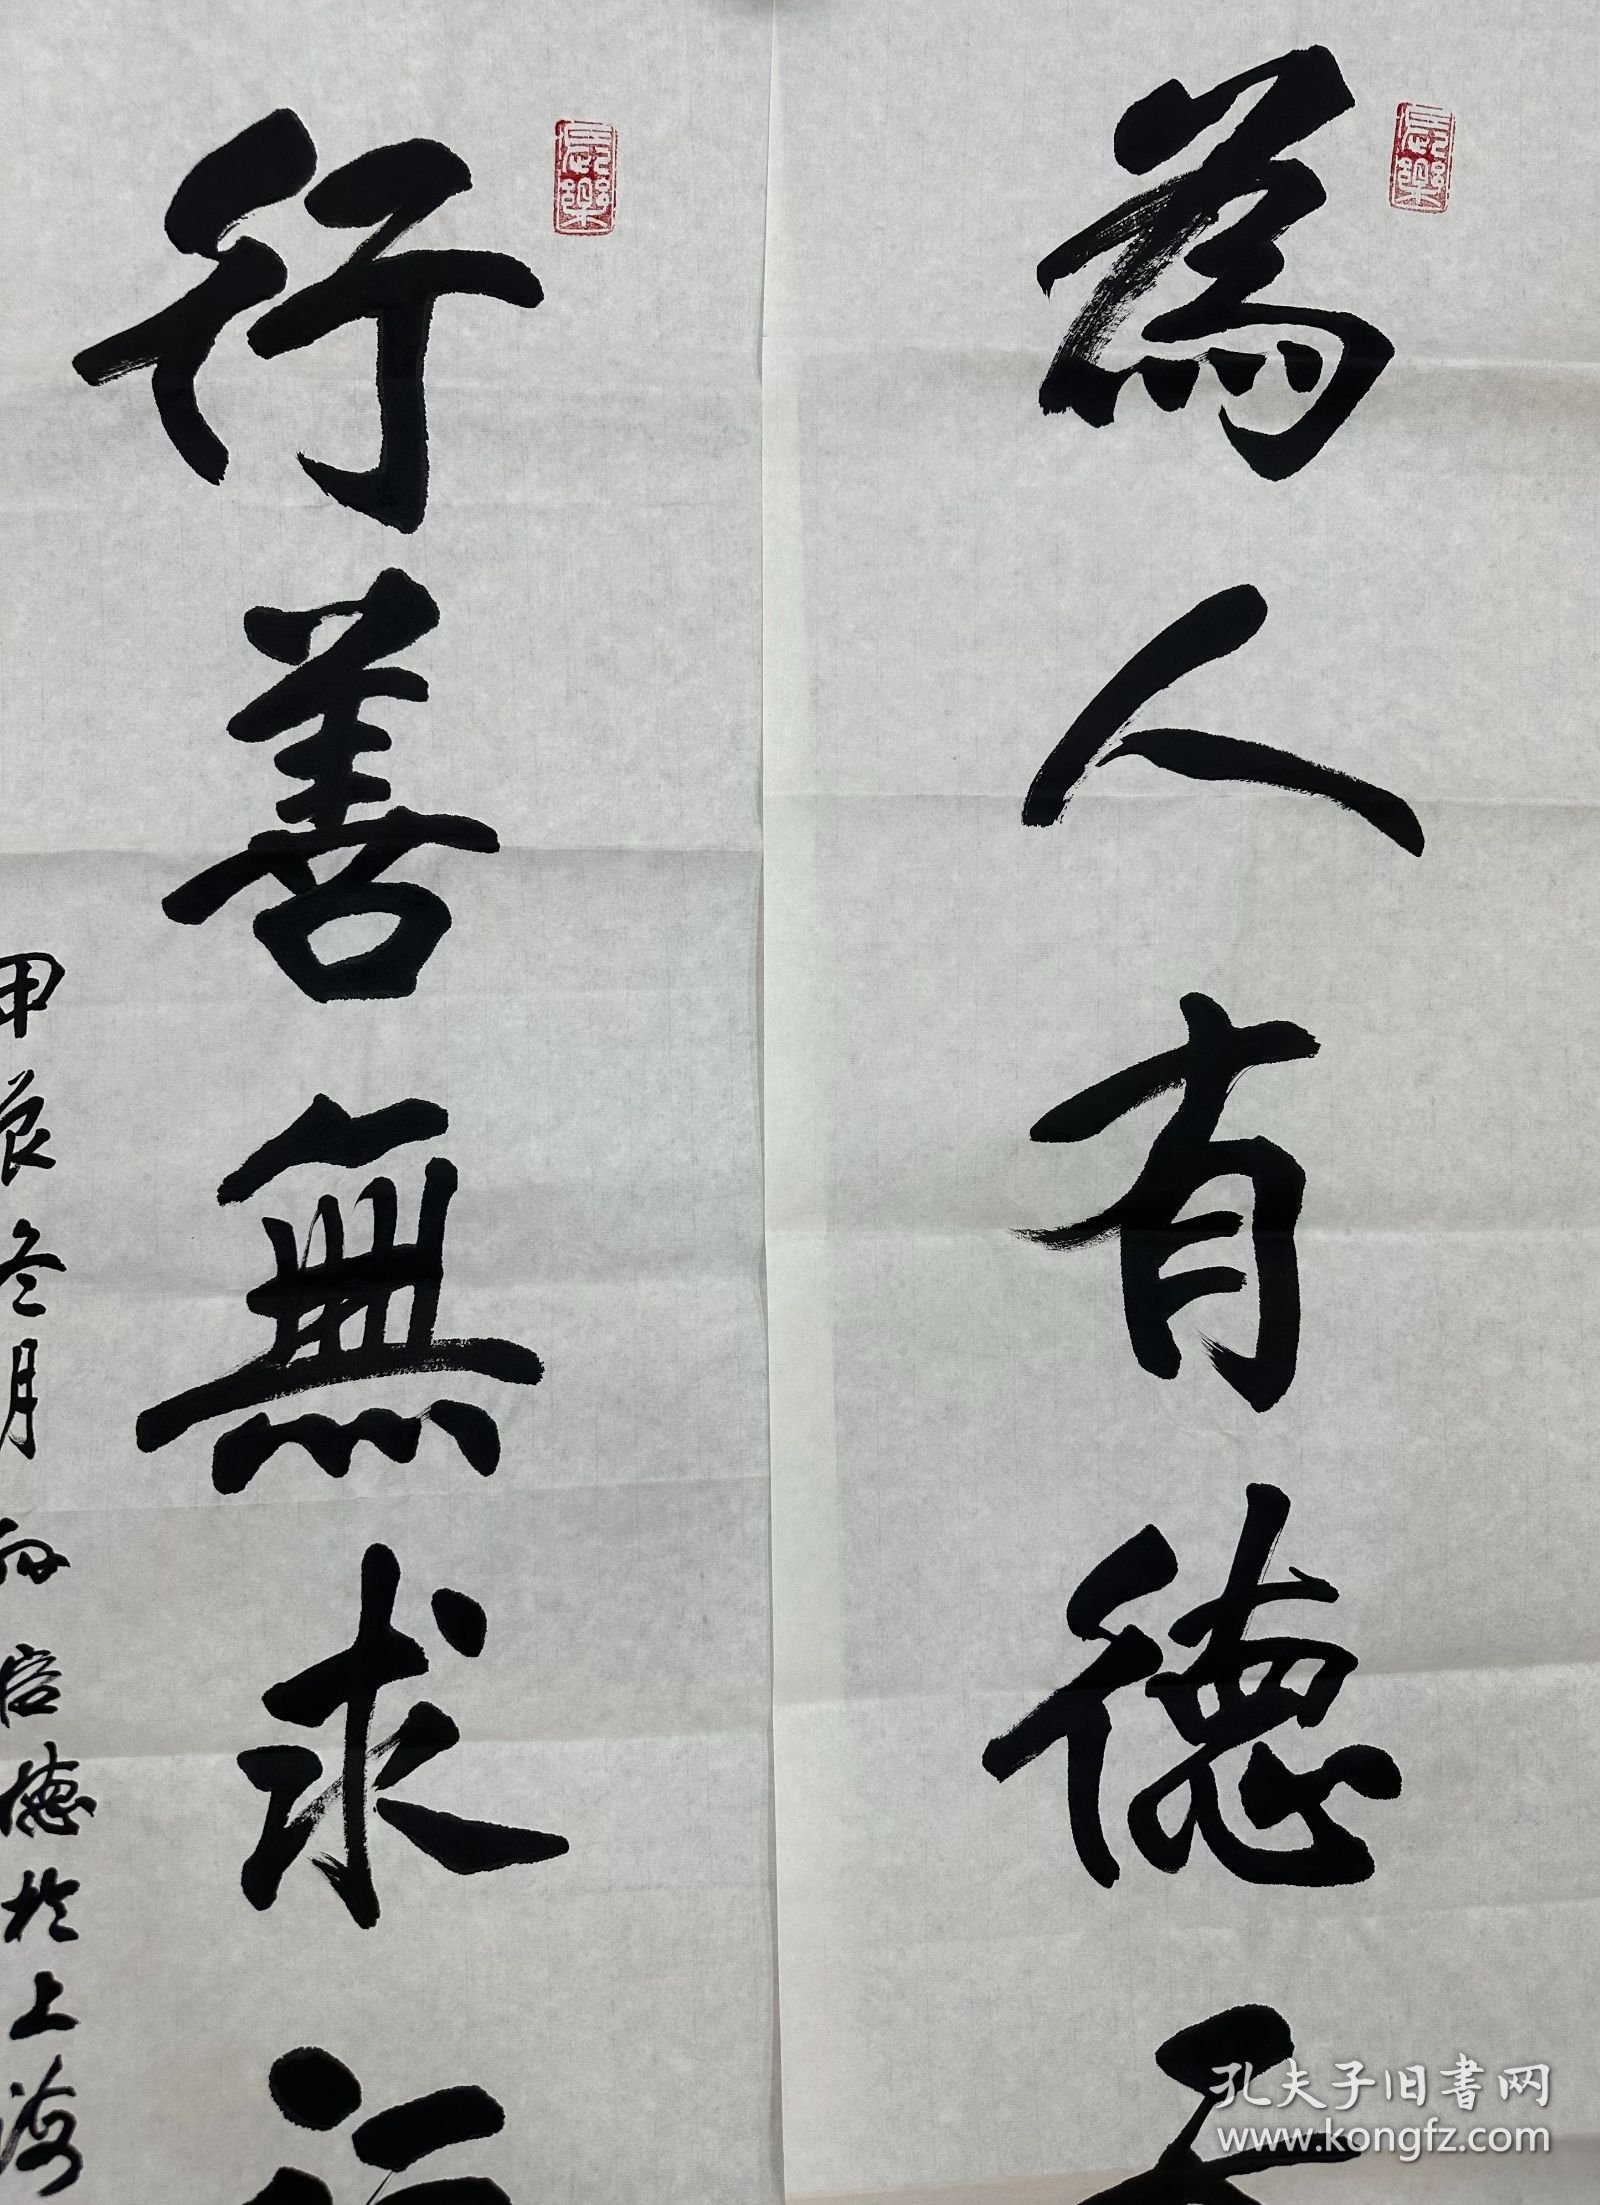 為人有德天
行善無求
甲辰冬月孫容德於上海
孔夫子旧书网
www.kongfz.com